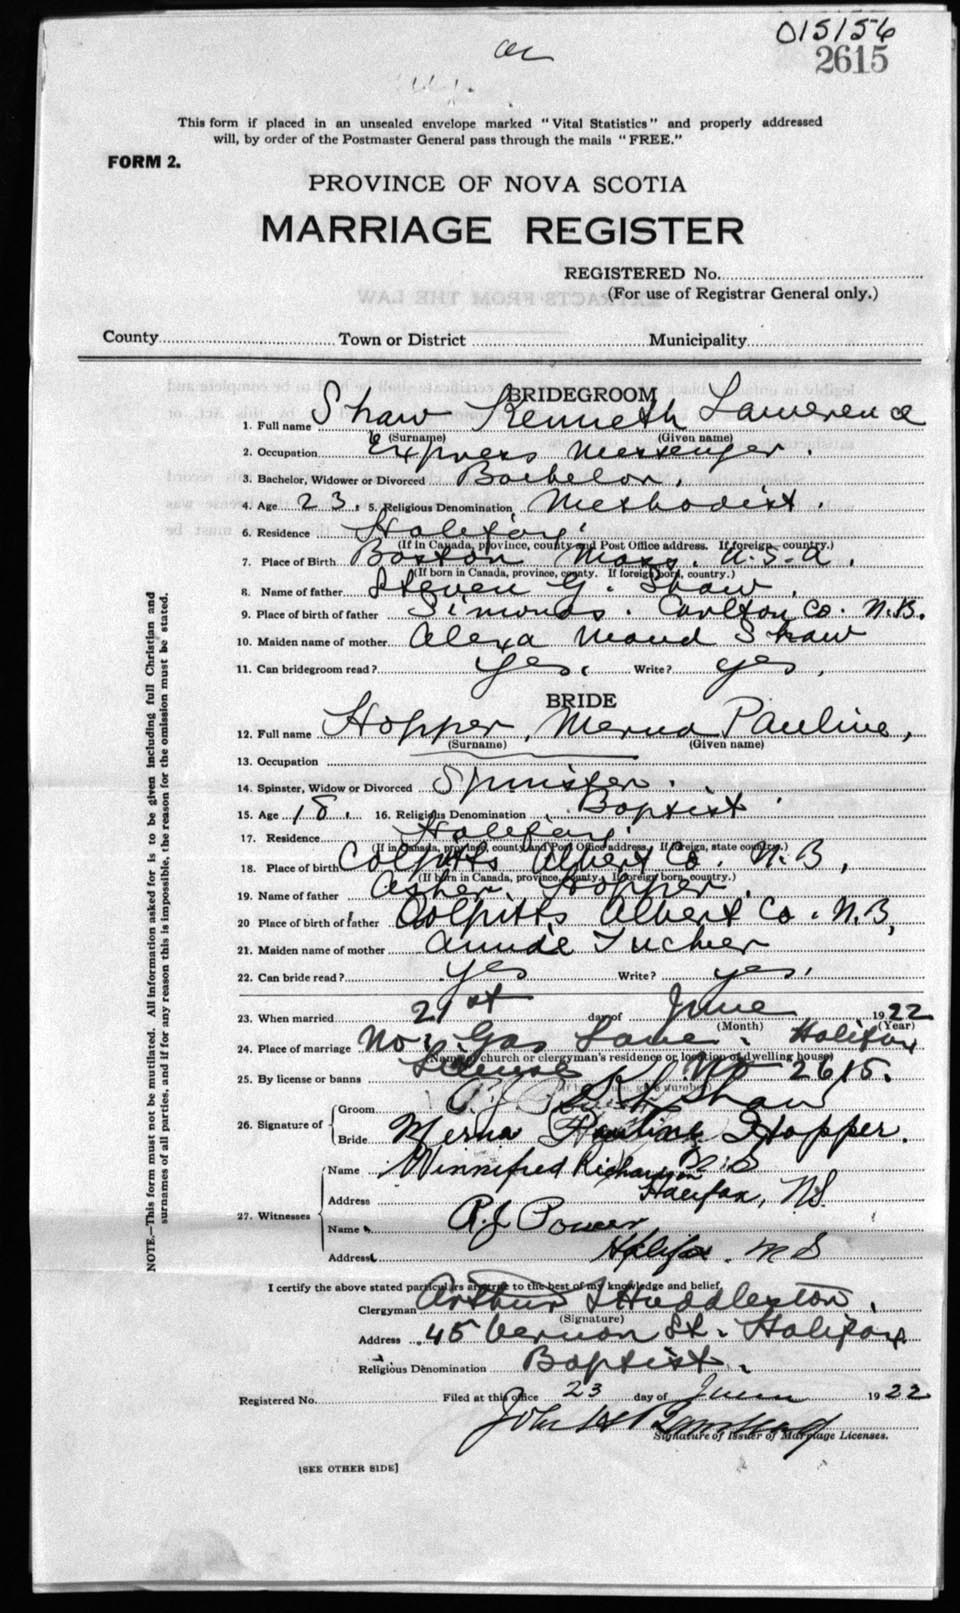 015156
2615
This form if placed in an unsealed envelope marked "Vital Statistics" and properly addressed
will, by order of the Postmaster General pass through the mails "FREE."
FORM 2.
PROVINCE OF NOVA SCOTIA
MARRIAGE REGISTER
REGISTERED No.
(For use of Registrar General only.)
EXTRACTS FROM THE LAW
County Town or District Municipality
BRIDEGROOM
1. Full name Shaw Kenneth Lawerence
(Surname) (Given name)
2. Occupation Express Messenger.
3. Bachelor, Widower or Divorced Bachelor.
4. Age 23. 5. Religious Denomination Methodist.
6. Residence Halifax.
(If in Canada, province, county and Post Office address. If foreign, country.)
7. Place of Birth Boston Mass. U.S.A.
(If born in Canada, province, county. If foreign born, country.)
8. Name of father Steven G. Shaw.
9. Place of birth of father Simonds. Carlton Co. N.B.
10. Maiden name of mother Alexa Maud Shaw
11. Can bridegroom read? yes. Write? yes.
BRIDE
12. Full name Hopper, Merna Pauline,
(Surname) (Given name)
13. Occupation
14. Spinster, Widow or Divorced Spinster.
15. Age 18. 16. Religious Denomination Baptist.
17. Residence Halifax.
(If in Canada, province, county and Post Office address. If foreign, state country.)
18. Place of birth Colpitts Albert Co. N.B,
(If born in Canada, province, county. If foreign born, country.)
19. Name of father Asher Hopper.
20 Place of birth of father Colpitts Albert Co. N.B,
21. Maiden name of mother Annie Tucker
22. Can bride read? yes Write? yes.
23. When married 21st day of June 1922
(Month) (Year)
24. Place of marriage No. Gas Lane. Halifax
(Name of church or clergyman's residence or location of dwelling house)
25. By license or banns License No 2615.
26. Signature of
Groom K L Shaw
Bride Merna Pauline Hopper.
27. Witnesses
Name Winnifred Richardson
Address Halifax, N.S.
Name R.J Power,
Address Halifax. N S
I certify the above stated particulars are true to the best of my knowledge and belief.
Clergyman Arthur J Huddleston.
(Signature)
Address 45 Vernon St. Halifax
Religious Denomination Baptist.
Registered No. Filed at this office 23 day of June 1922
John
Signature of Issuer of Marriage Licenses.
[SEE OTHER SIDE]
NOTE.—This form must not be mutilated. All information asked for is to be given including full Christian and
surnames of all parties, and if for any reason this is impossible, the reason for the omission must be stated.